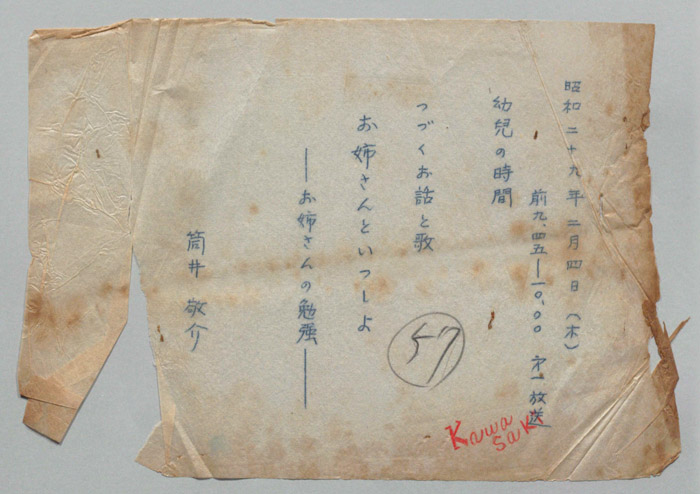 昭和二十九年二月四日(木)
前九、四五―一〇、〇〇 第一放送
幼兒の時間
つづくお話と歌
お姉さんといっしよ
―お姉さんの勉强―
筒井敬介
57
Kawa
sak